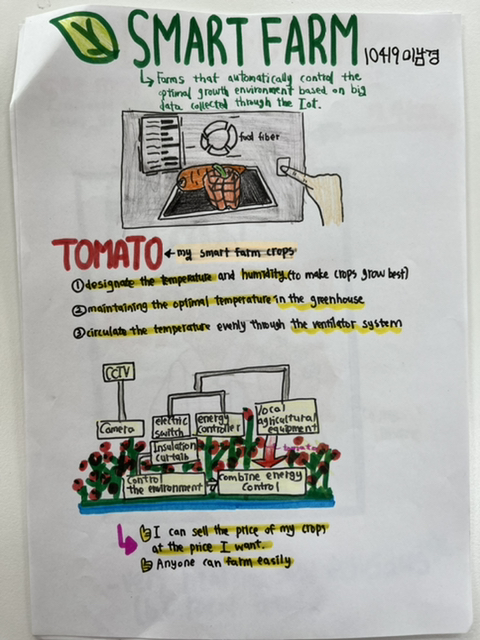 SMART FARM
10419 이남경
↳ Farms that automatically control the
optimal growth environment based on big
data collected through the Iot.
food fiber
TOMATO ← my smart farm crops
① designate the temperature and humidity (to make crops grow best)
② maintaining the optimal temperature in the greenhouse
③ circulate the temperature evenly through the ventilator system
CCTV
Camera
electric
switch
energy
controller
local
agricultural
equipment
Insulation
curtain
tomato
Control
the environment
combine energy
control
I can sell the price of my crops
at the price I want.
Anyone can farm easily